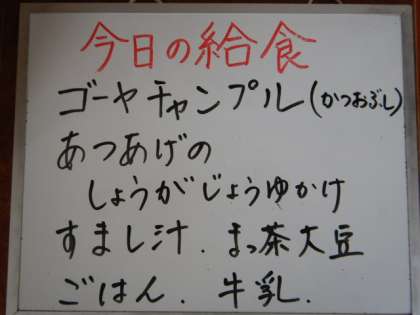 今日の給食
ゴーヤチャンプル(かつおぶし)
あつあげの
しょうがじょうゆかけ
すまし汁．まっ茶大豆
ごはん．牛乳．